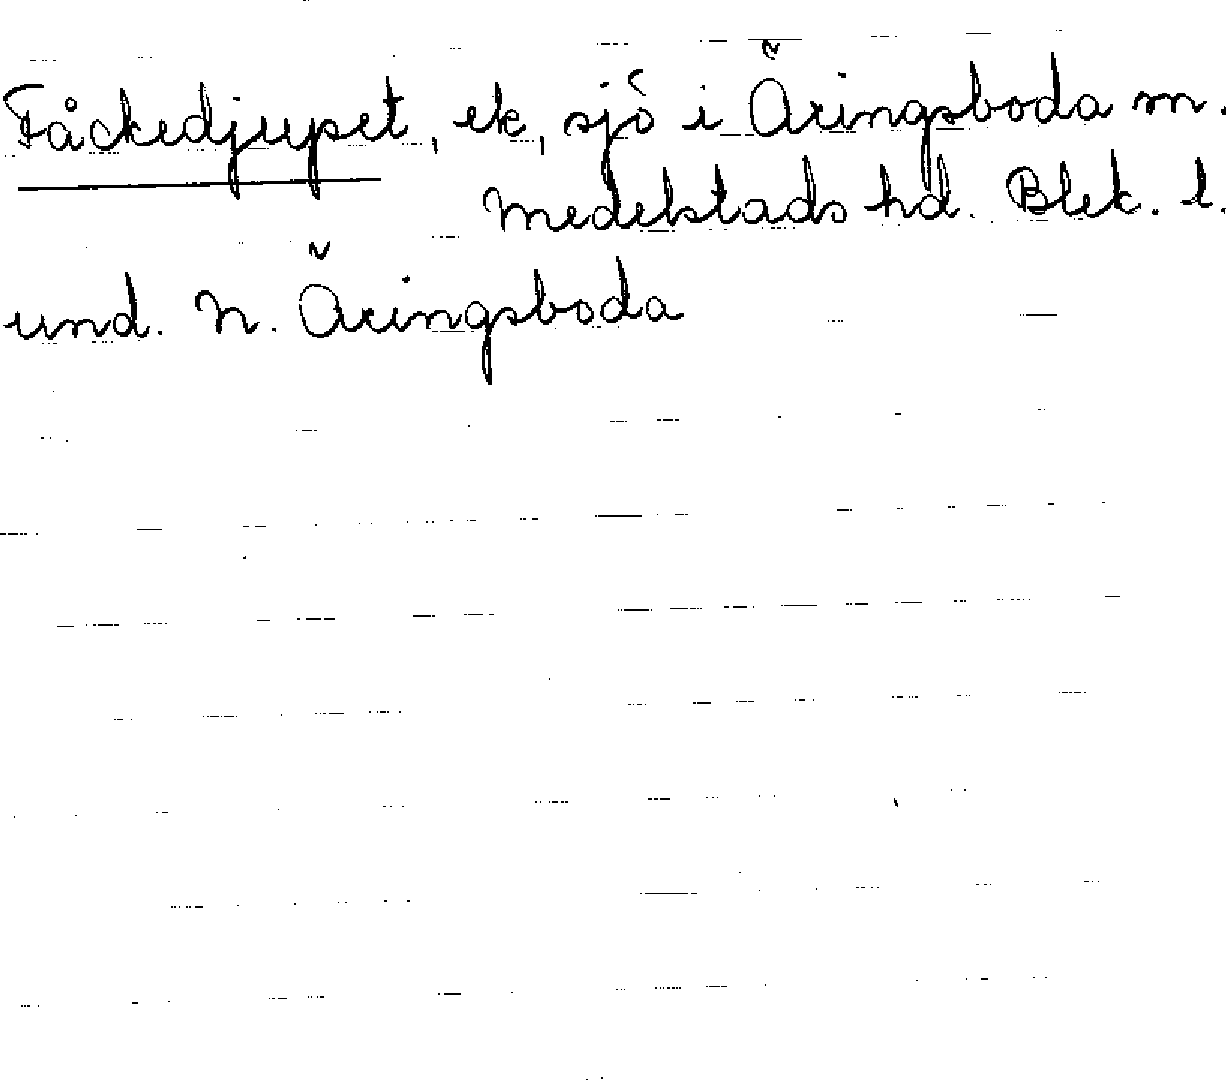 Fåckedjupet, ek, sjö i Äringsboda m.
Medelstads hd. Blek. l.
und. N. Äringsboda